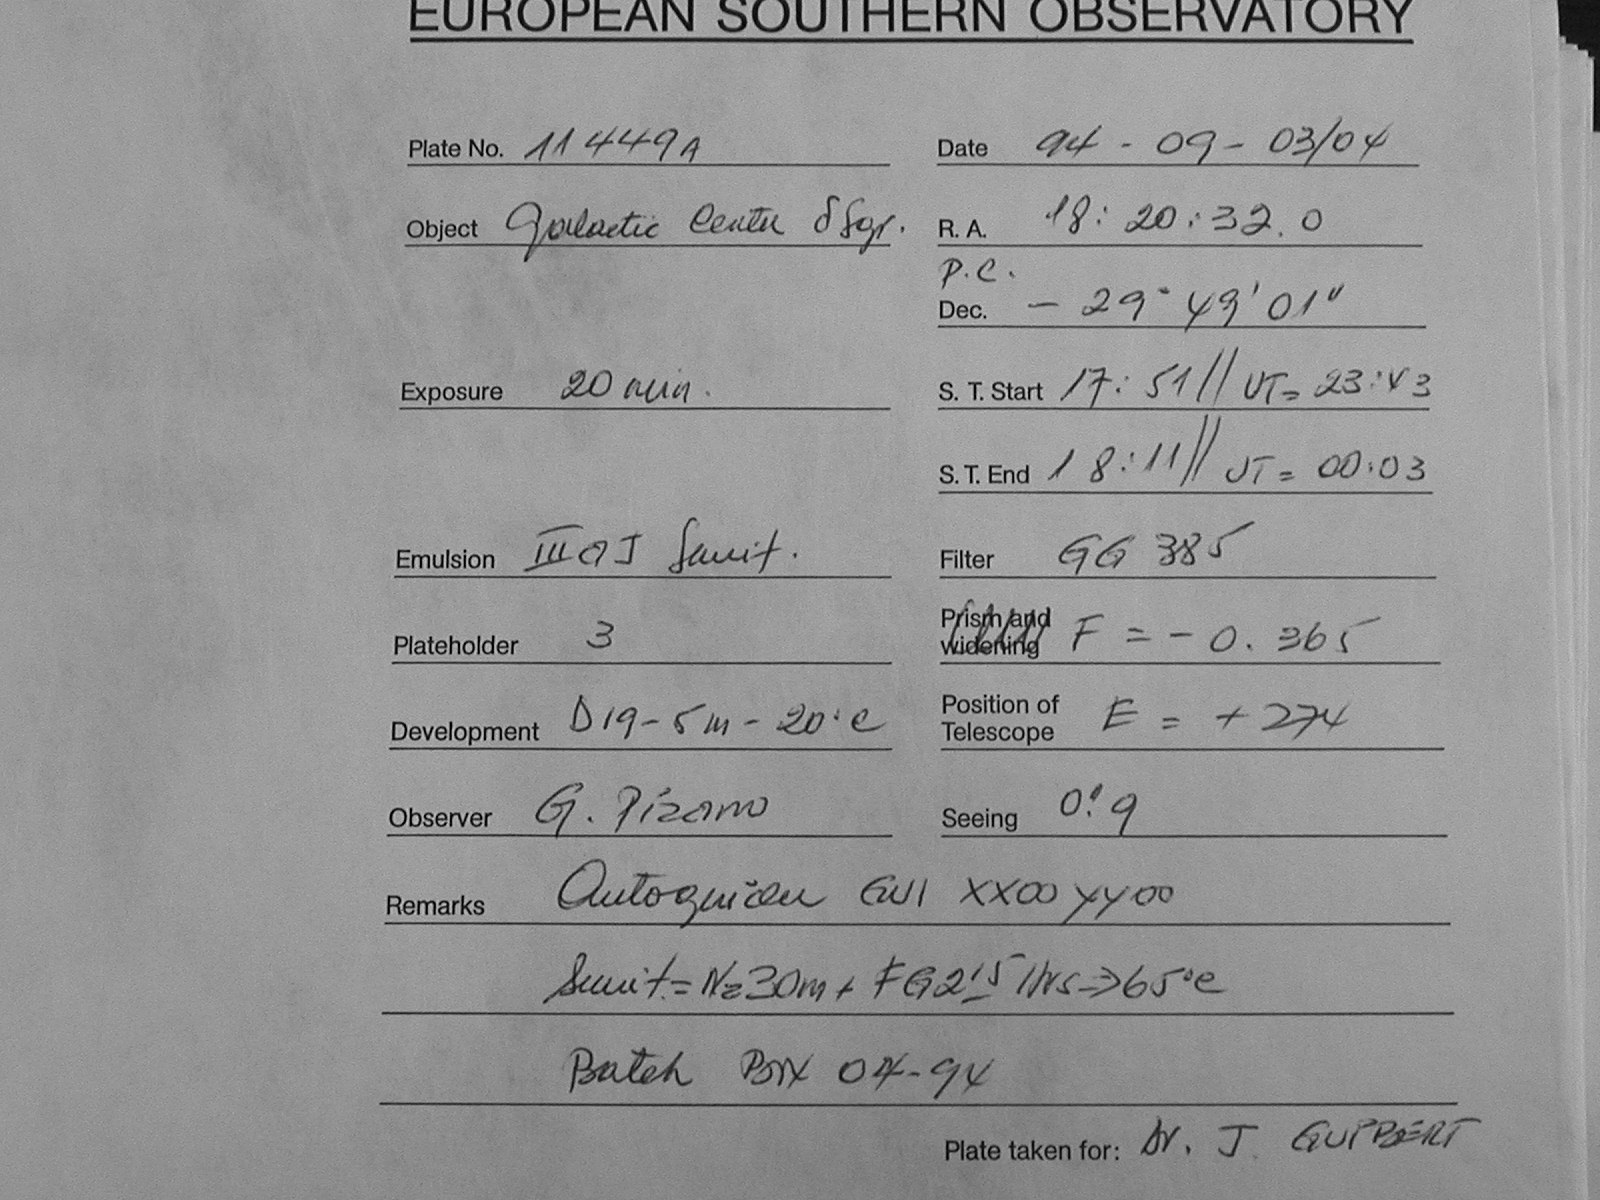 EUROPEAN SOUTHERN OBSERVATORY
Plate No. 11449A Date 94 - 09 - 03/04
Object Galactic Center δ Sgr. R. A. 18: 20: 32.0
P.C.
Dec. - 29° 49' 01"
Exposure 20 min. S. T. Start 17: 51 // UT= 23:43
S. T. End 18:11 // UT= 00:03
Emulsion III a J Sensit. Filter GG 385
Plateholder 3 Prism and widening F = - 0. 365
Development D19 - 5m - 20°C Position of Telescope E = + 274
Observer G. Pizarro Seeing 0".9
Remarks Autoguider XX00 YY00
Sensit.= N2 30m + FG 2!5 Hrs → 65°C
Batch Box 04-94
Plate taken for: Dr. J